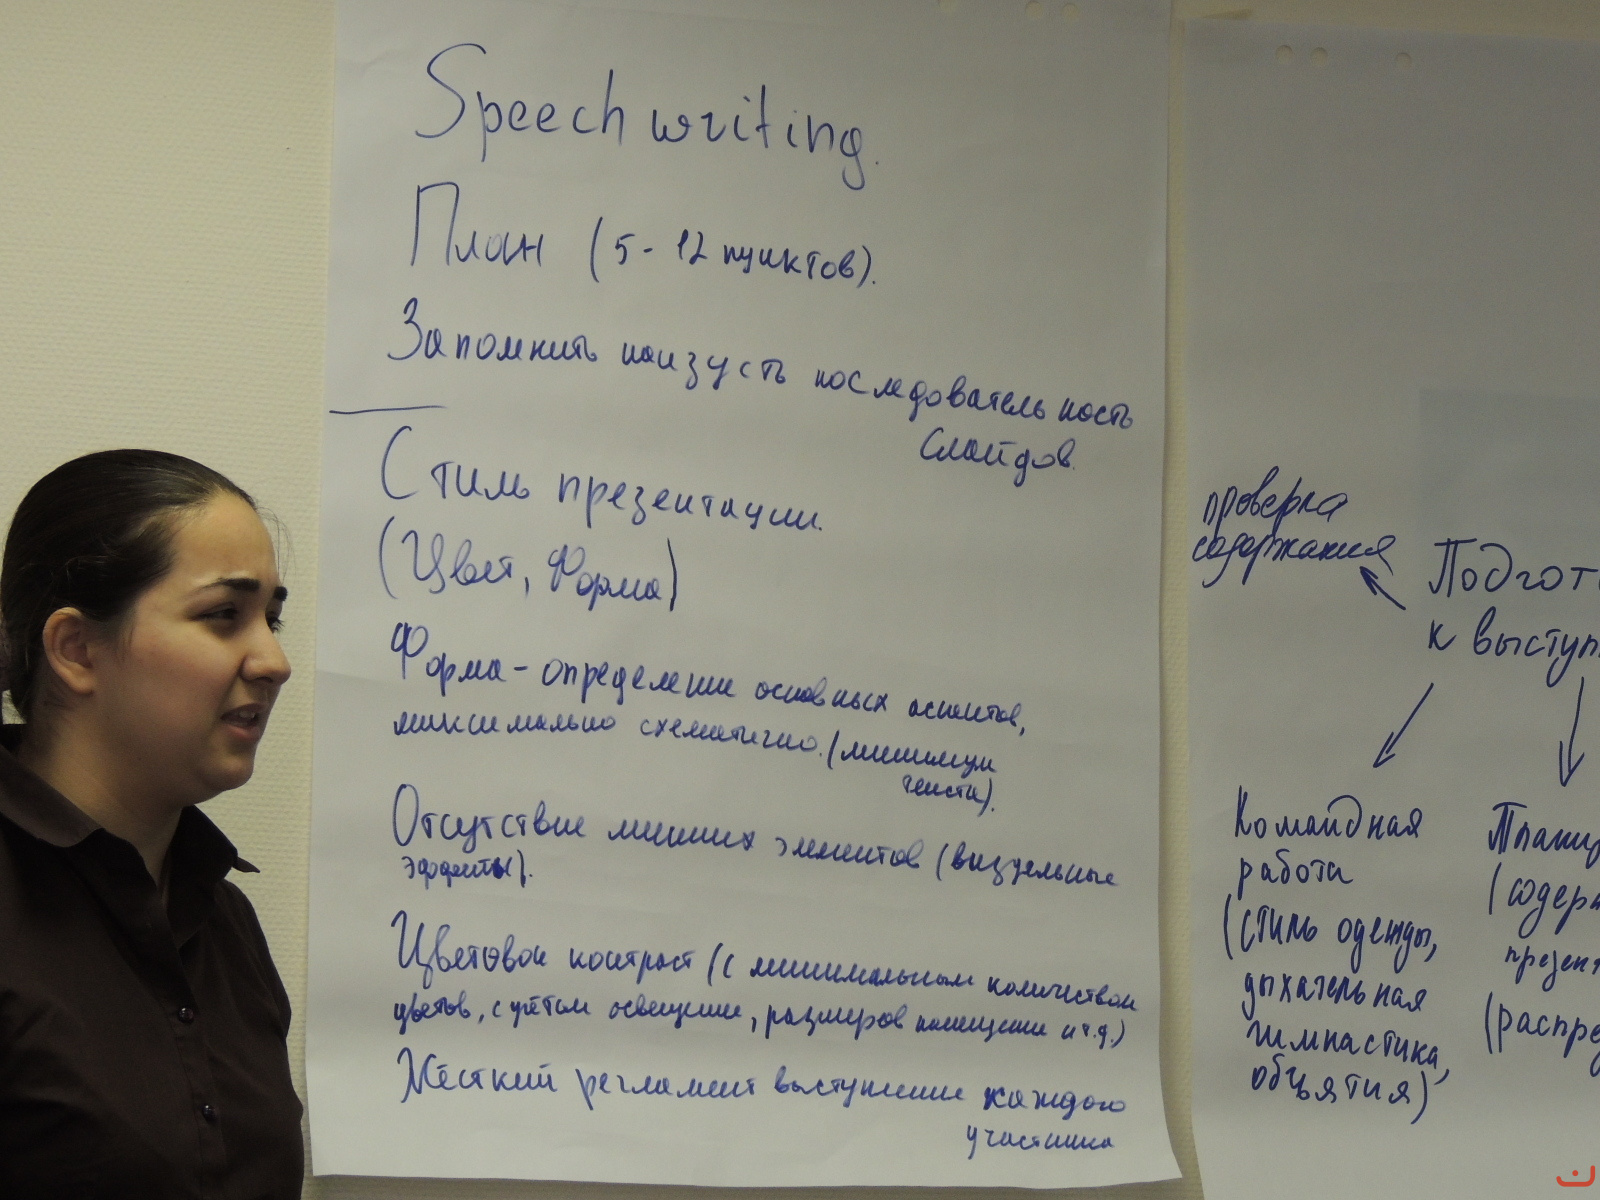 Speechwriting.
План (5-12 пунктов).
Запомнить наизусть последовательность
слайдов.
Стиль презентации.
(Цвет, Форма)
Форма - определение основных аспектов,
максимально схематично. (минимум
текста).
Отсутствие лишних элементов (визуальные
эффекты).
Цветовой контраст (с минимальным количеством
цветов, с учётом освещение, размеров помещение и т.д.)
Жёсткий регламент выступление каждого
участника
проверка
содержания
Подгот
к выступ
Командная
работа
(стиль одежды,
дыхательная
гимнастика,
объятия)
(содерж
презент
(распре